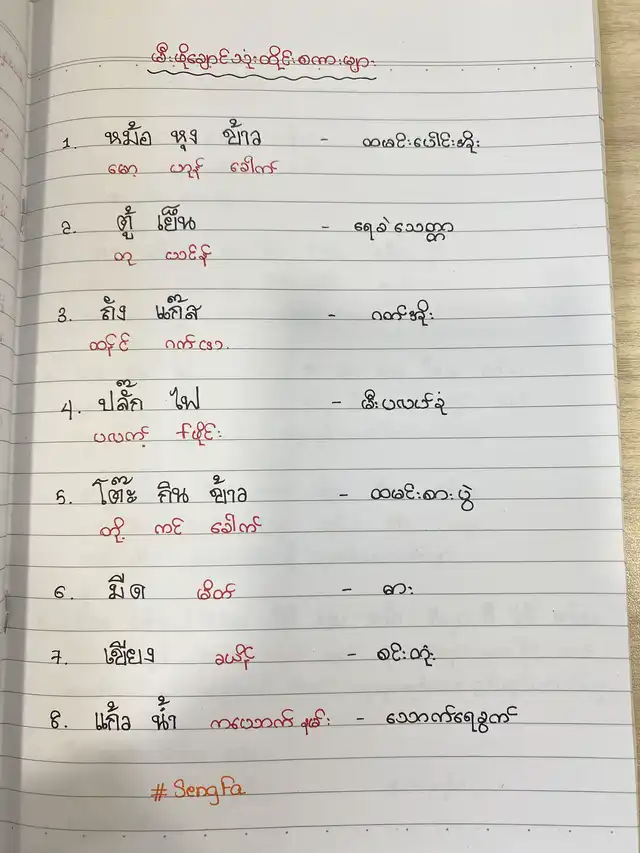 မီးဖိုချောင်သုံးတိုင်းစကားများ
1. หม้อ หุง ข้าว - ထမင်းပေါင်းအိုး
မော့ ဟုန် ခေါက်
2. ตู้ เย็น - ရေခဲသေတ္တာ
တု ယင်န်
3. ถัง แก๊ส - ဂတ်စ်အိုး
ထန်င် ဂက်
4. ปลั๊ก ไฟ - မီးပလပ်ခုံ
ပလက့် ဖိုင်း
5. โต๊ะ กิน ข้าว - ထမင်းစားပွဲ
တို့ ကင် ခေါက်
6. มีด မိတ် - ဓား
7. เขียง ခယိုင် - စင်းတုံး
8. แก้ว น้ำ ကယောက် နမ်း - သောက်ရေခွက်
#SengFa